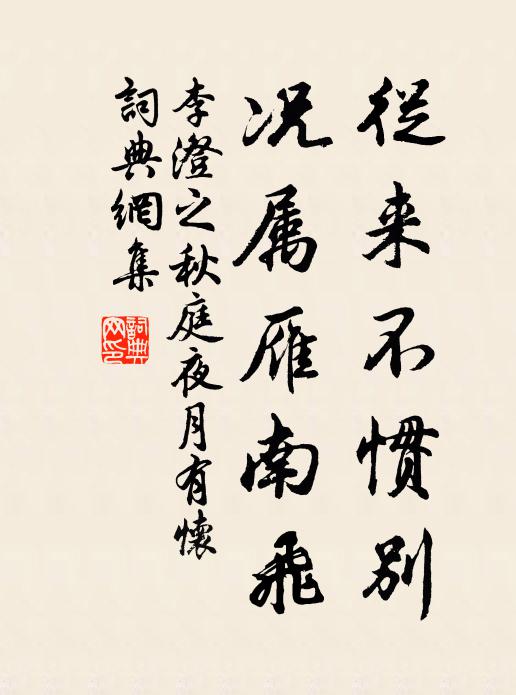 從来不慣別
况属雁南飛
李澄之秋庭夜月有懷
詞典網集
詞典网印